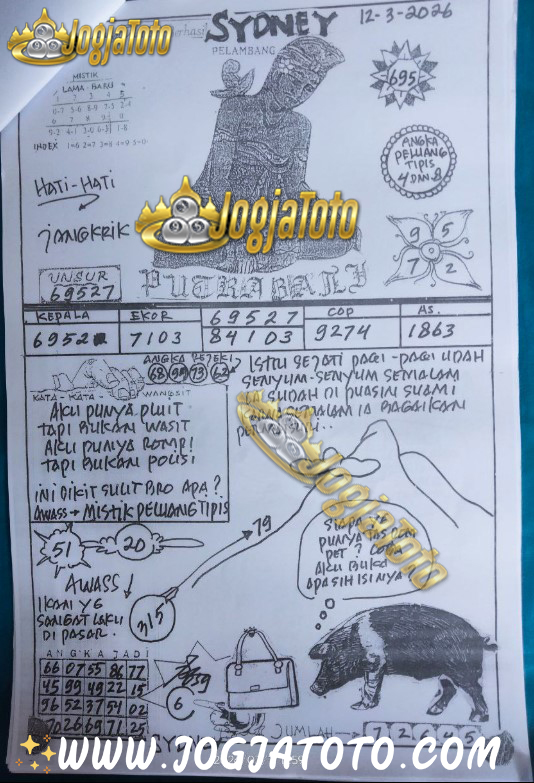 JogjaToto
SYDNEY
12-3-2026
PELAMBANG
MISTIK
LAMA BARU
1 2 3 4 5
6 7 8 9 0
INDEX
695
ANGKA
PELUANG
TIPIS
4 DAN 8
HATI-HATI
JANGKRIK
JogjaToto
9 5
7 2
UNSUR
69527
PUTRA BALI
KEPALA EKOR 69527 COP AS.
7103 84103 9274 1863
ANGKA REJEKI
68 99 73 62
KATA - KATA - WANGSIT
AKU PUNYA PLUIT
TAPI BUKAN WASIT
AKU PUNYA ROMPI
TAPI BUKAN POLISI
INI DIKIT SULIT BRO APA?
AWASS → MISTIK PELUANG TIPIS
ISTRI SEJATI PAGI-PAGI UDAH
SENYUM-SENYUM SEMALAM
IA SUDAH DI PUASIN SUAMI
SEMALAM IA BAGAIKAN
JogjaToto
51
20
79
AWASS!
IKAN YG
SANGAT LAKU
DI PASAR.
315
SIAPA YG
PUNYA TAS
PET? COBA
AKU BUKA
APA SIH ISINYA
ANGKA JADI
66 07 55 86 77
45 99 49 22 15
96 52 37 54 02
70 26 69 71 25
6
JUMLAH
WWW.JOGJATOTO.COM